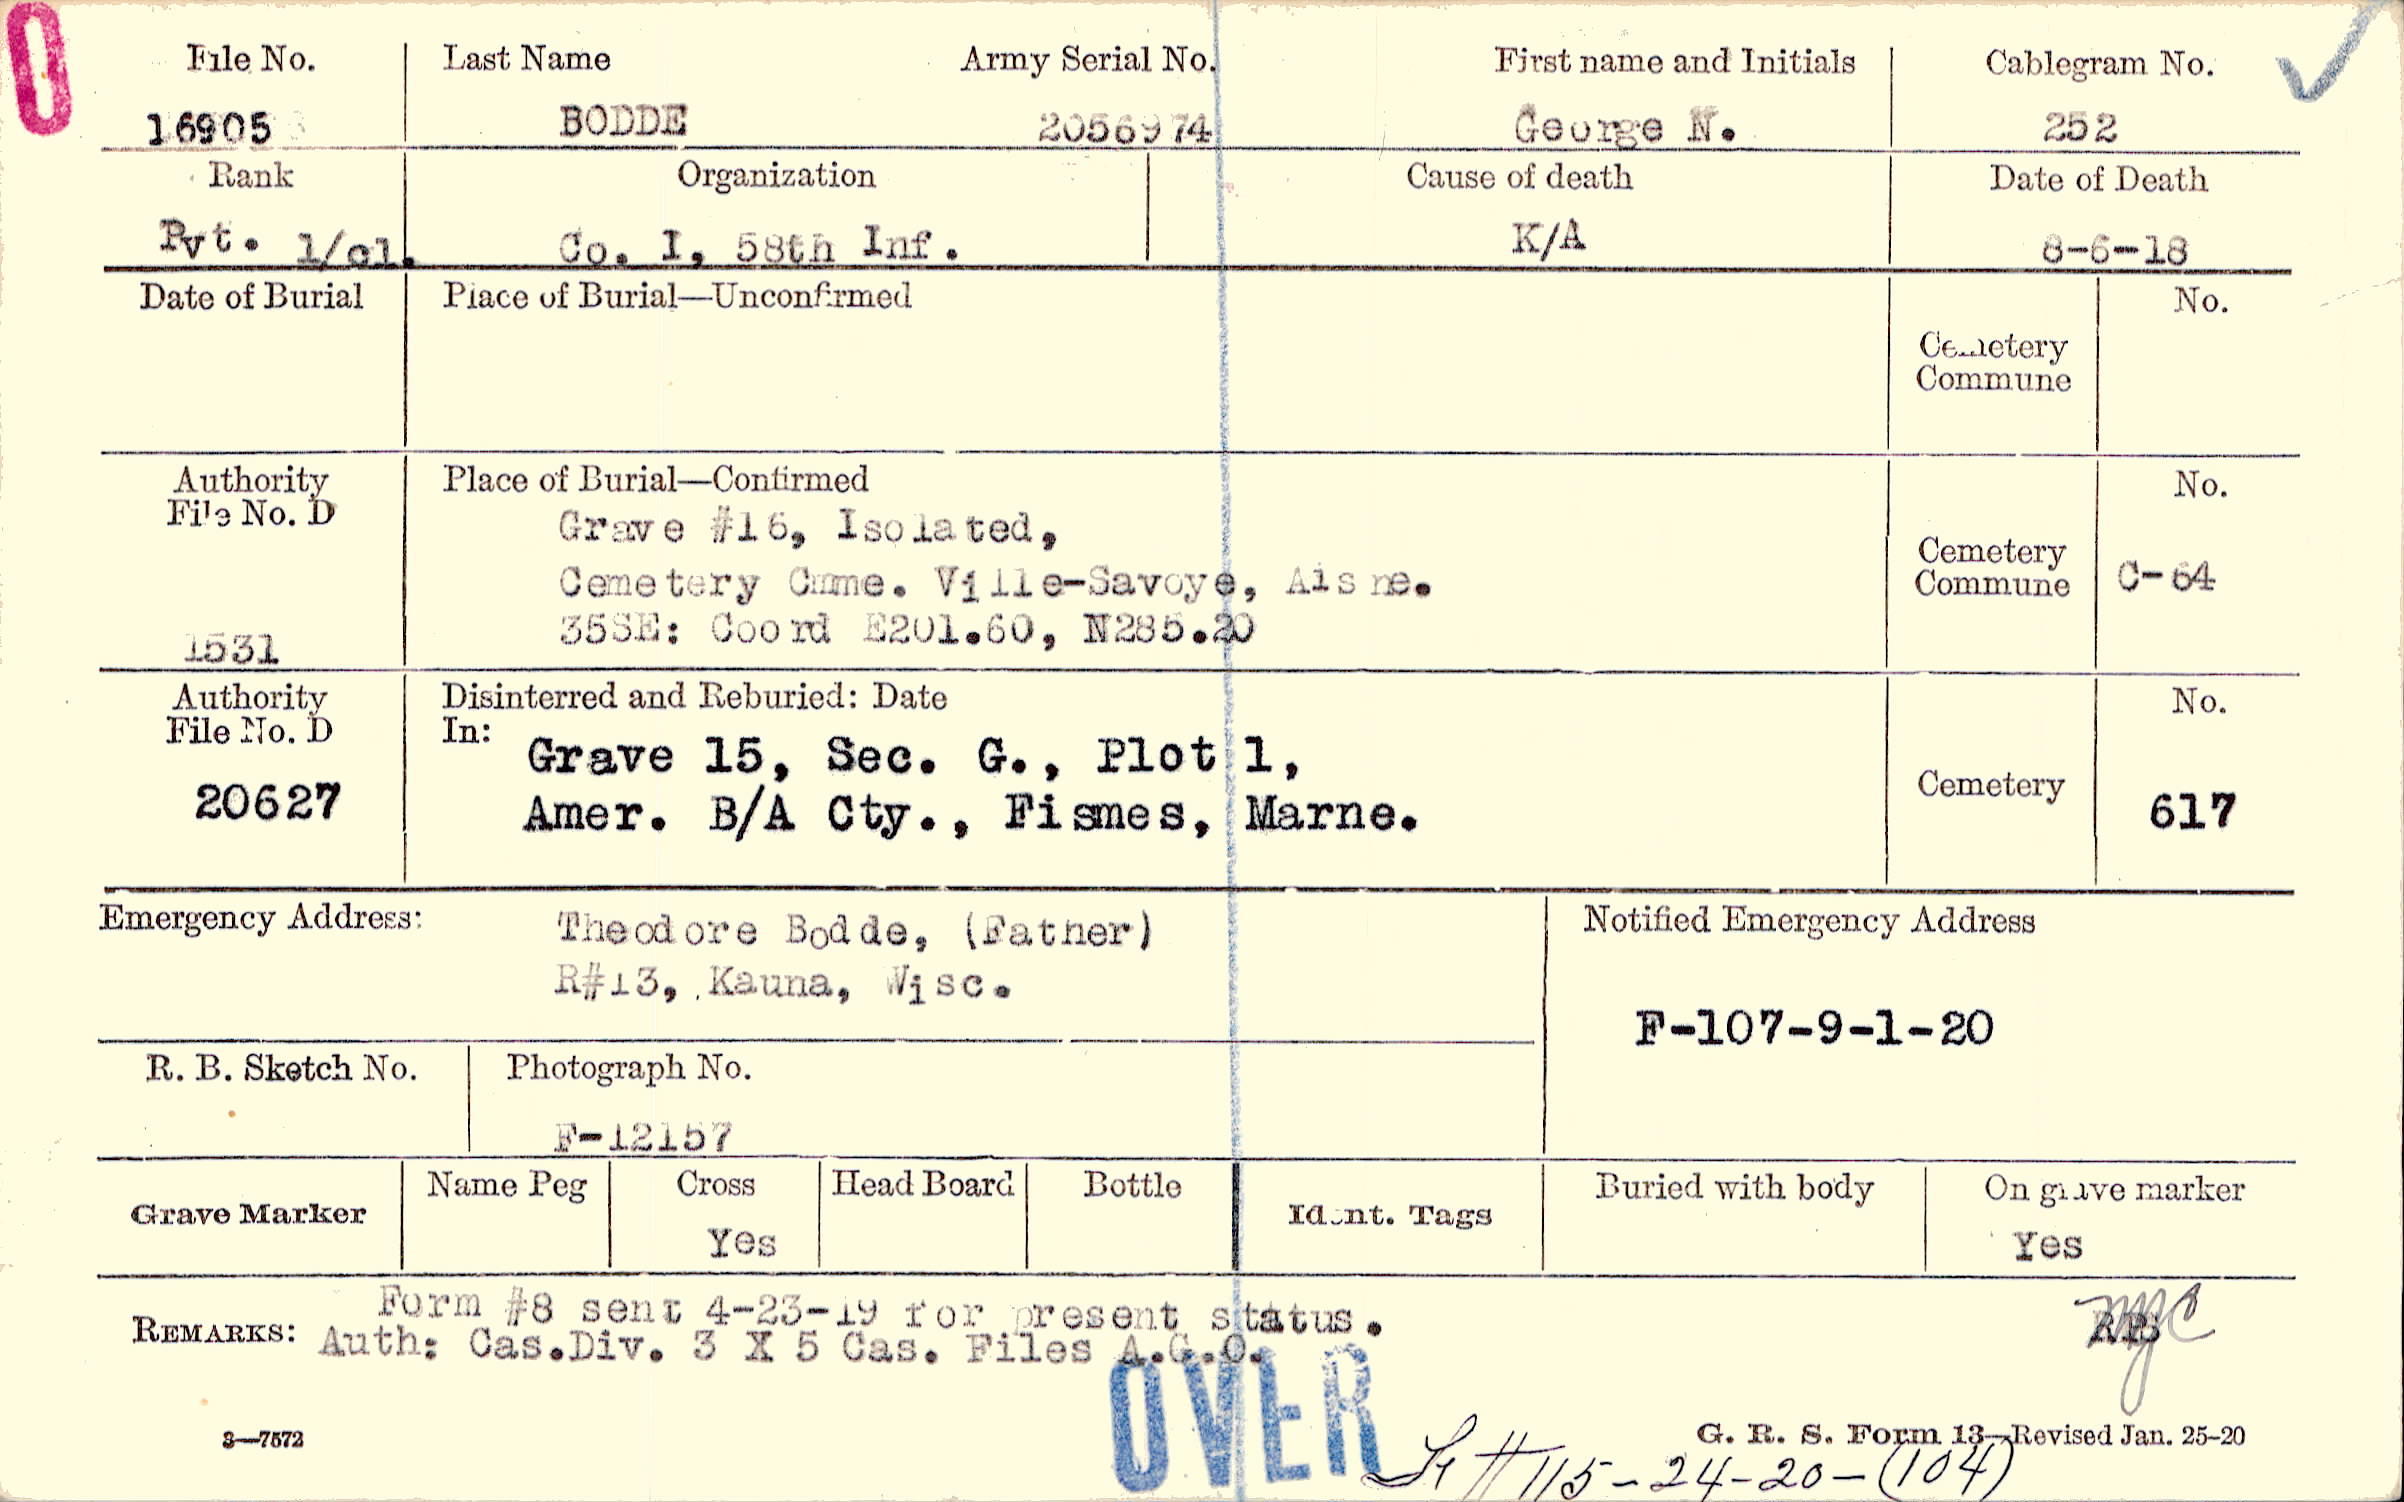 0
File No.
Last Name
Army Serial No.
First name and Initials
Cablegram No.
16905
BODDE
2056974
George N.
252
Rank
Organization
Cause of death
Date of Death
Pvt. 1/cl.
Co. I, 58th Inf.
K/A
8-6-18
Date of Burial
Place of Burial—Unconfirmed
No.
Cemetery
Commune
Authority
File No. D
Place of Burial—Confirmed
No.
Grave #16, Isolated,
Cemetery Cmme. Ville-Savoye, Aisne.
35SE: Coord E201.60, N285.20
1531
Cemetery
Commune
C-64
Authority
File No. D
Disinterred and Reburied: Date
In:
No.
Grave 15, Sec. G., Plot 1,
Amer. B/A Cty., Fismes, Marne.
20627
Cemetery
617
Emergency Address:
Theodore Bodde, (Father)
R#13, Kauna, Wisc.
Notified Emergency Address
F-107-9-1-20
R. B. Sketch No.
Photograph No.
F-12157
Grave Marker
Name Peg
Cross
Head Board
Bottle
Ident. Tags
Buried with body
On grave marker
Yes
Yes
REMARKS:
Form #8 sent 4-23-19 for present status.
Auth: Cas.Div. 3 X 5 Cas. Files A.G.O.
OVER
3—7572
G. R. S. Form 13—Revised Jan. 25-20
#115-24-20-(104)